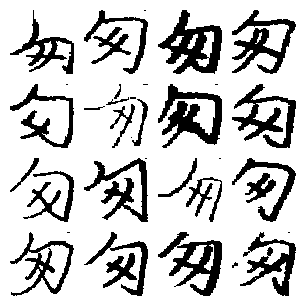 匆匆匆匆
匆匆匆匆
匆匆匆匆
匆匆匆匆